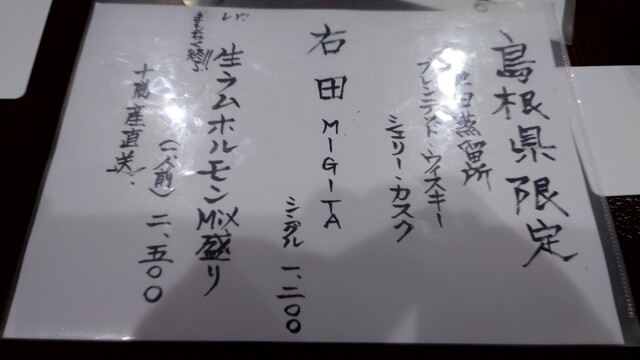 島根県限定
蒸留所
ブレンデッド・ウィスキー
シェリー・カスク
右田 MIGITA
シングル 一、二〇〇
まもなく終了!!
生ラムホルモンMIX盛り
(一人前) 二、五〇〇
十勝産直送